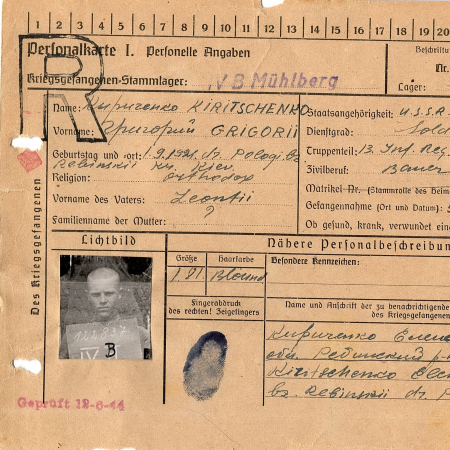 1 2 3 4 5 6 7 8 9 10 11 12 13 14 15 16 17 18 19 20
R
Personalkarte I. Personelle Angaben
Beschriftu
Nr.
Kriegsgefangenen-Stammlager: IV B Mühlberg
Lager:
Name: Кириченко KIRITSCHENKO
Staatsangehörigkeit: U.S.S.R
Vorname: Григорий GRIGORII
Dienstgrad: Sold
Geburtstag und -ort: 1.9.1921
Truppenteil: 13. Inf. Reg
Kiev
Zivilberuf: Bauer
Religion: orthodox
Matrikel Nr. (Stammrolle des Heim
Vorname des Vaters: Leontii
Gefangennahme (Ort und Datum):
Familienname der Mutter: ?
Ob gesund, krank, verwundet eing
Des Kriegsgefangenen
Lichtbild
Nähere Personalbeschreibun
Größe
Haarfarbe
Besondere Kennzeichen:
1.71
Blond
Fingerabdruck
des rechten! Zeigefingers
Name und Anschrift der zu benachrichtigende
des Kriegsgefangenen
IV B
Кириченко Елена
Kiritschenko
Geprüft 12-6-44